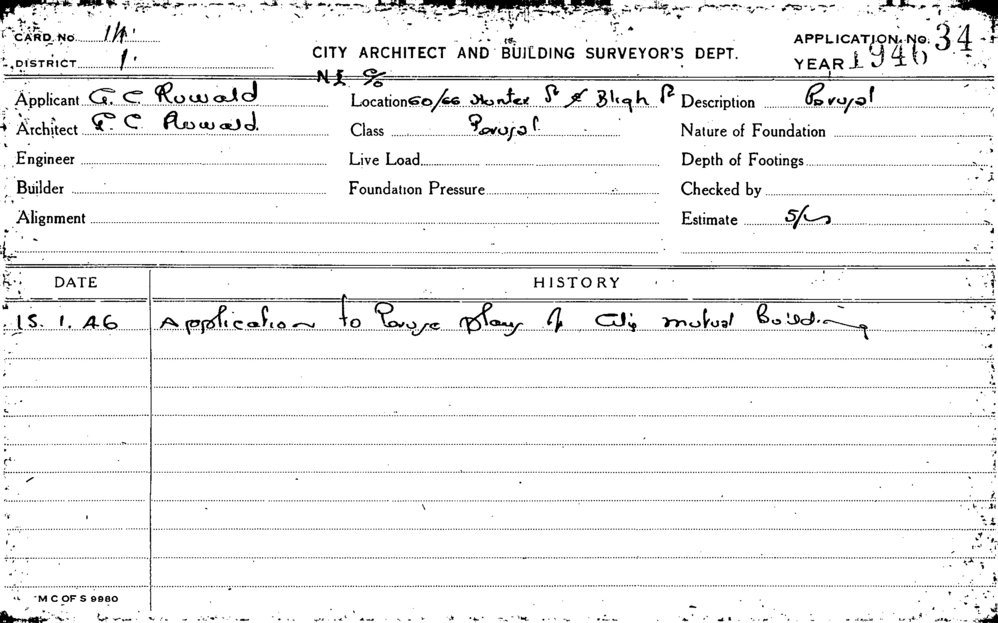 CARD No. 1/1.
APPLICATION. No. 34
DISTRICT 1.
CITY ARCHITECT AND BUILDING SURVEYOR'S DEPT.
YEAR 1946
N.E. C/o
Applicant G. C Ruwald
Location 60/66 Hunter St & Bligh St
Description Perusal
Architect G. C Ruwald.
Class Perusal
Nature of Foundation
Engineer
Live Load
Depth of Footings
Builder
Foundation Pressure
Checked by
Alignment
Estimate 5/-
DATE
HISTORY
15. 1. 46 Application to Peruse plans of City mutual Building
M C OF S 9980